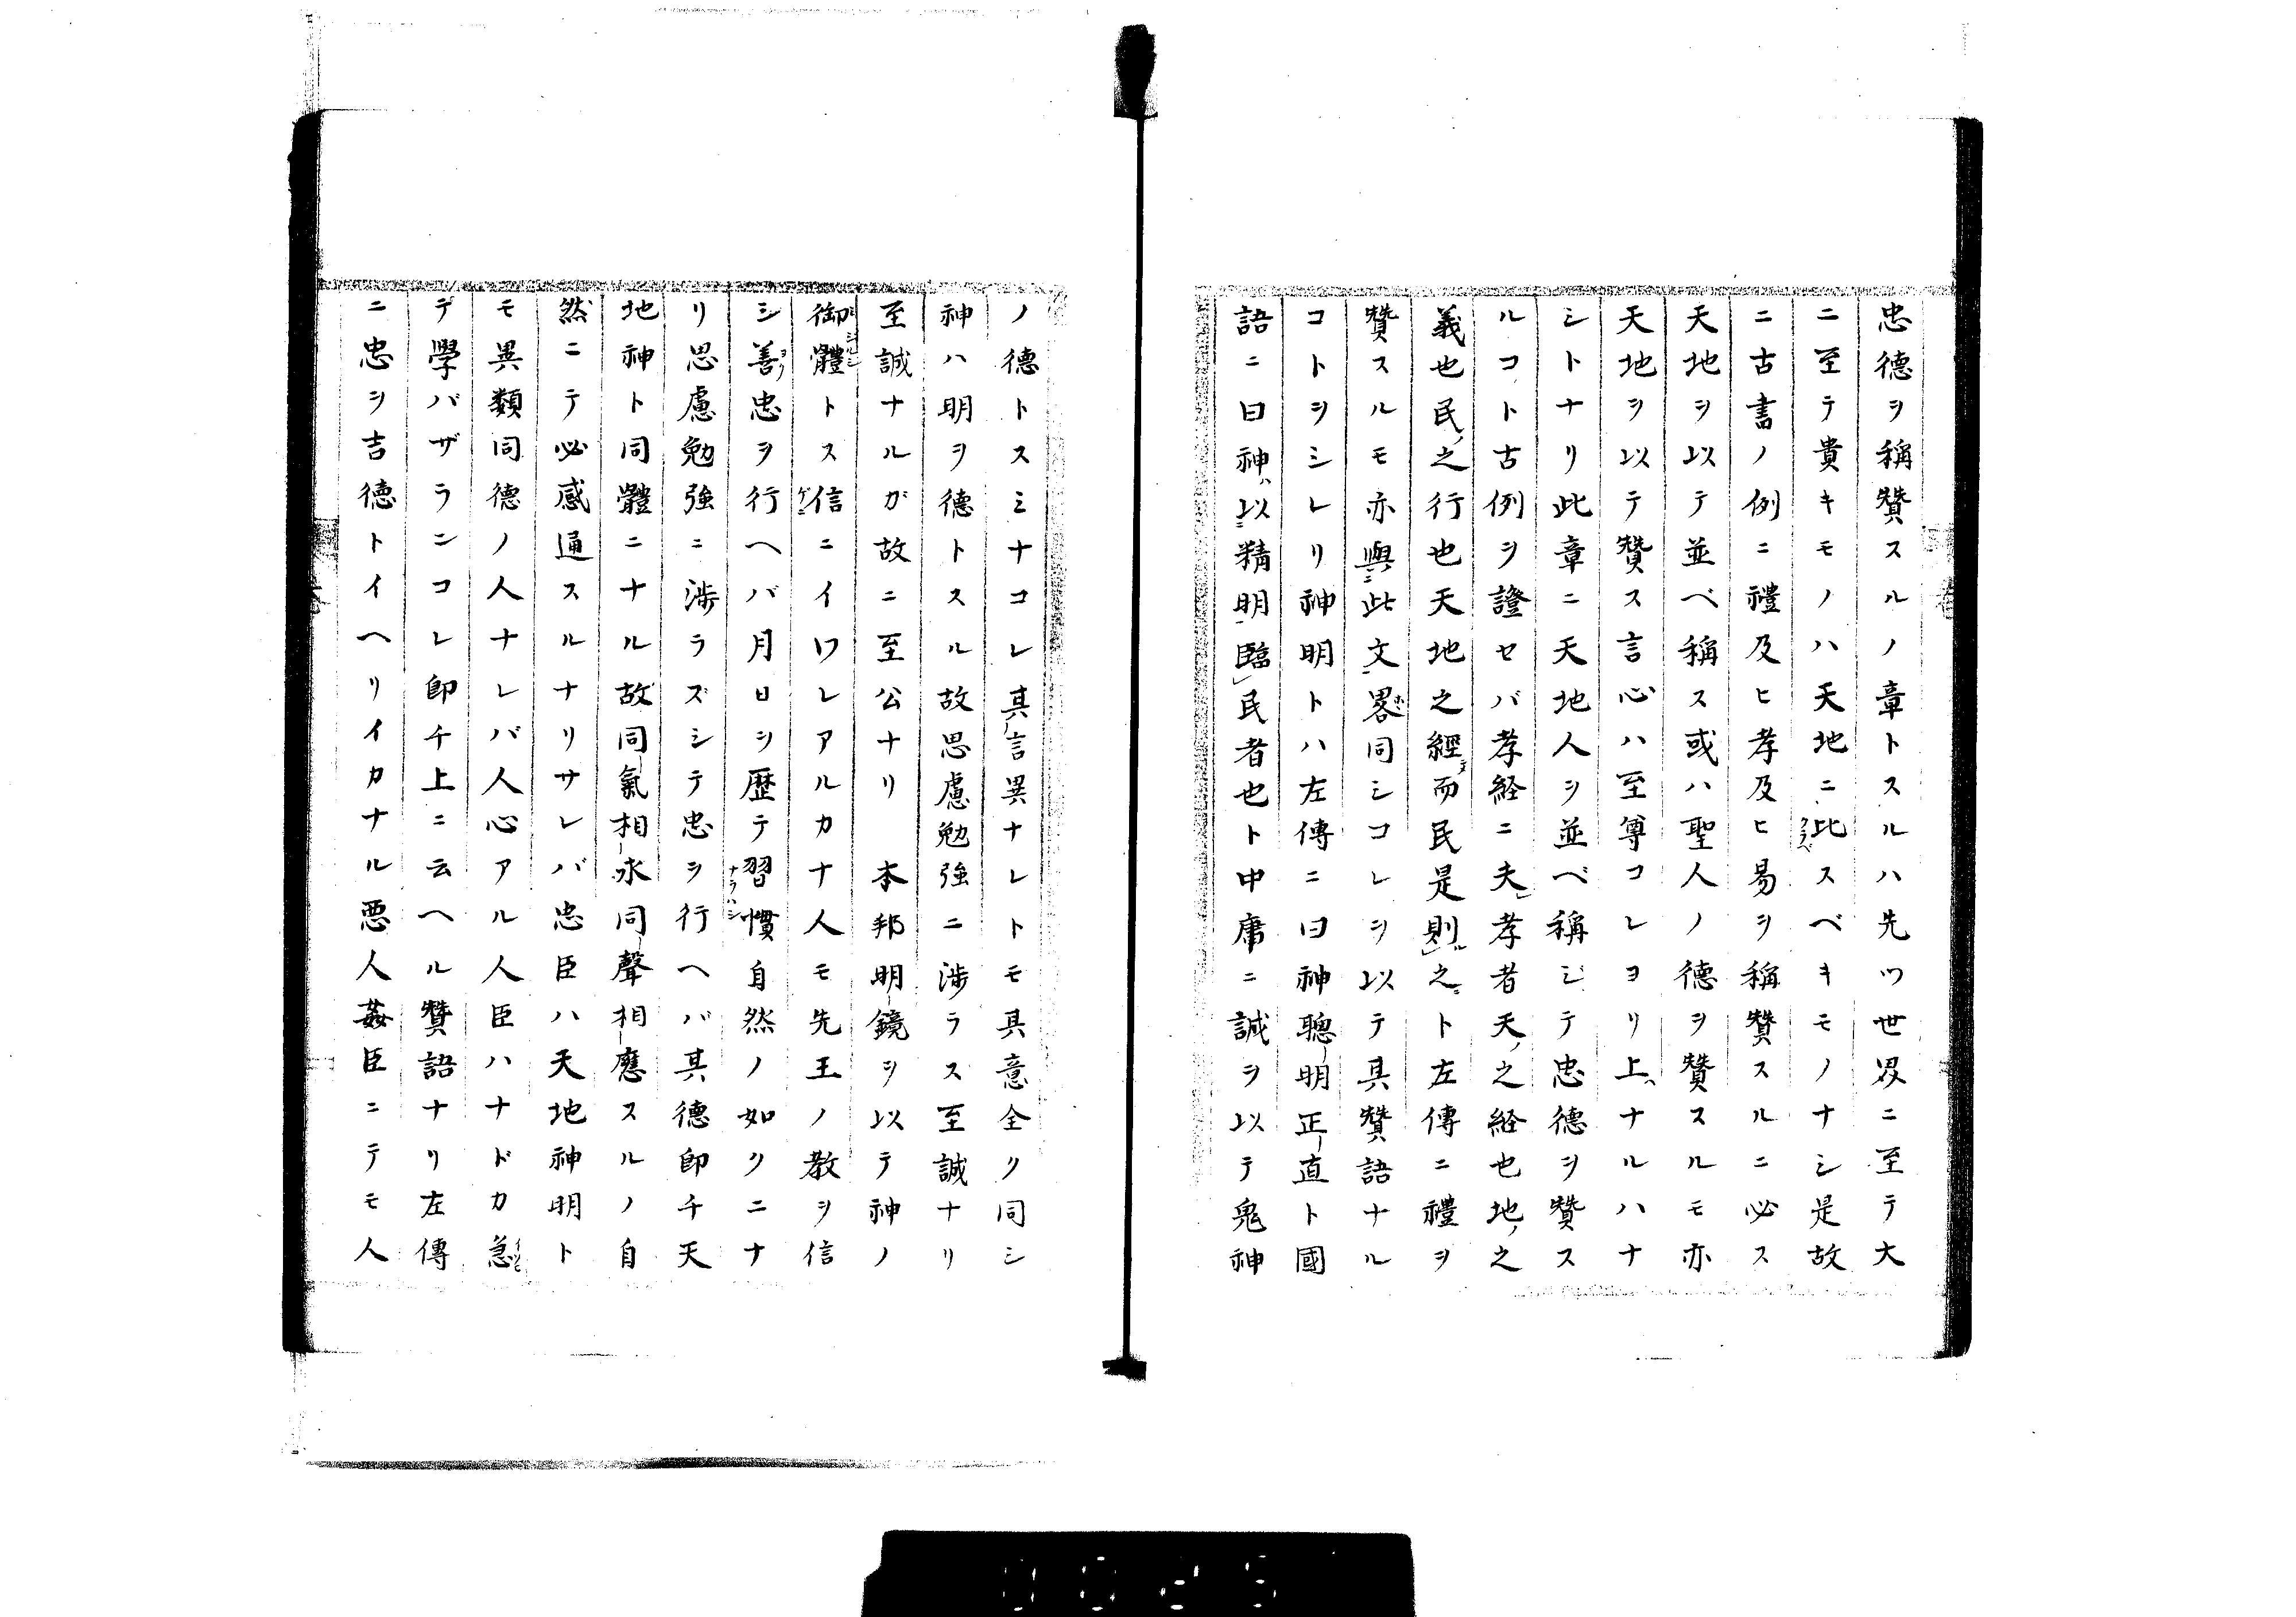 忠德ヲ稱賛スルノ章トスルハ先ツ世界ニ至テ大
ニ至テ貴キモノハ天地ニ比スベキモノナシ是故
ニ古書ノ例ニ禮及ヒ孝及ヒ易ヲ稱賛スルニ必ス
天地ヲ以テ並ベ稱ス或ハ聖人ノ德ヲ賛スルモ亦
天地ヲ以テ賛ス言心ハ至尊コレヨリ上ナルハナ
シトナリ此章ニ天地人ヲ並ベ稱シテ忠德ヲ賛ス
ルコト古例ヲ證セバ孝経ニ夫孝者天之経也地之
義也民之行也天地之經而民是則之ト左傳ニ禮ヲ
賛スルモ亦與此文畧同シコレヲ以テ其賛語ナル
コトヲシレリ神明トハ左傳ニ曰神聰明正直ト國
語ニ曰神以精明臨民者也ト中庸ニ誠ヲ以テ鬼神
ノ德トスミナコレ其言異ナレトモ其意全ク同シ
神ハ明ヲ德トスル故思慮勉強ニ涉ラス至誠ナリ
至誠ナルガ故ニ至公ナリ　本邦明鏡ヲ以テ神ノ
御體トス信ニイワレアルカナ人モ先王ノ教ヲ信
シ善忠ヲ行ヘバ月日ヲ歴テ習慣自然ノ如クニナ
リ思慮勉強ニ涉ラズシテ忠ヲ行ヘバ其德即チ天
地神ト同體ニナル故同氣相求同聲相應スルノ自
然ニテ必感通スルナリサレバ忠臣ハ天地神明ト
モ異類同德ノ人ナレバ人心アル人臣ハナドカ急
テ學バザランコレ即チ上ニ云ヘル賛語ナリ左傳
ニ忠ヲ吉德トイヘリイカナル悪人姦臣ニテモ人